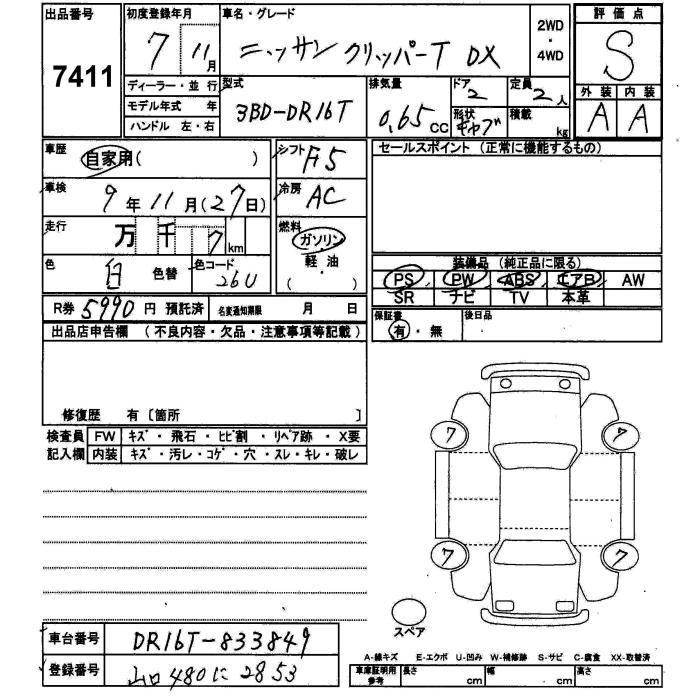 出品番号 初度登録年月 車名・グレード 評価点
7411 7 11月 ニッサン クリッパーT DX 2WD・4WD S
ディーラー・並行 型式 排気量 ドア 定員 外装 内装
モデル年式 年 3BD-DR16T 0.65CC 2 2人 A A
ハンドル 左・右 形状 キャブ 積載 kg
車歴 自家用( ) シフト F5 セールスポイント (正常に機能するもの)
車検 9年11月(27日) 冷房 AC
走行 万 千 7km 燃料 ガソリン・軽油 ( )
色 白 色替 色コード 26U 装備品 (純正品に限る)
PS PW ABS エアB AW
SR ナビ TV 本革
R券 5990円 預託済 名変通知期限 月 日 保証書 有・無 後日品
出品店申告欄 (不良内容・欠品・注意事項等記載)
修復歴 有 〔箇所 〕
検査員 FW キズ・飛石・ヒビ割・リペア跡・X要
記入欄 内装 キズ・汚レ・コゲ・穴・スレ・キレ・破レ
7 7
7 7
スペア
車台番号 DR16T-833849
登録番号 山口480に2853
A-線キズ E-エクボ U-凹み W-補修跡 S-サビ C-腐食 XX-取替済
車庫証明用参考 長さ cm 幅 cm 高さ cm